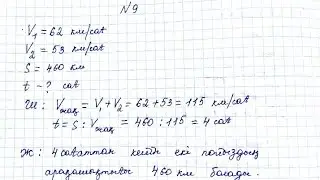 N9
V₁ = 62 км/сағ
V₂ = 53 км/сағ
S = 460 км
t - ? сағ
Ш: Vжақ = V₁ + V₂ = 62 + 53 = 115 км/сағ
t = S : Vжақ = 460 : 115 = 4 сағ
Ж: 4 сағаттан кейін екі пойыздың
арақашықтығы 460 км болады.